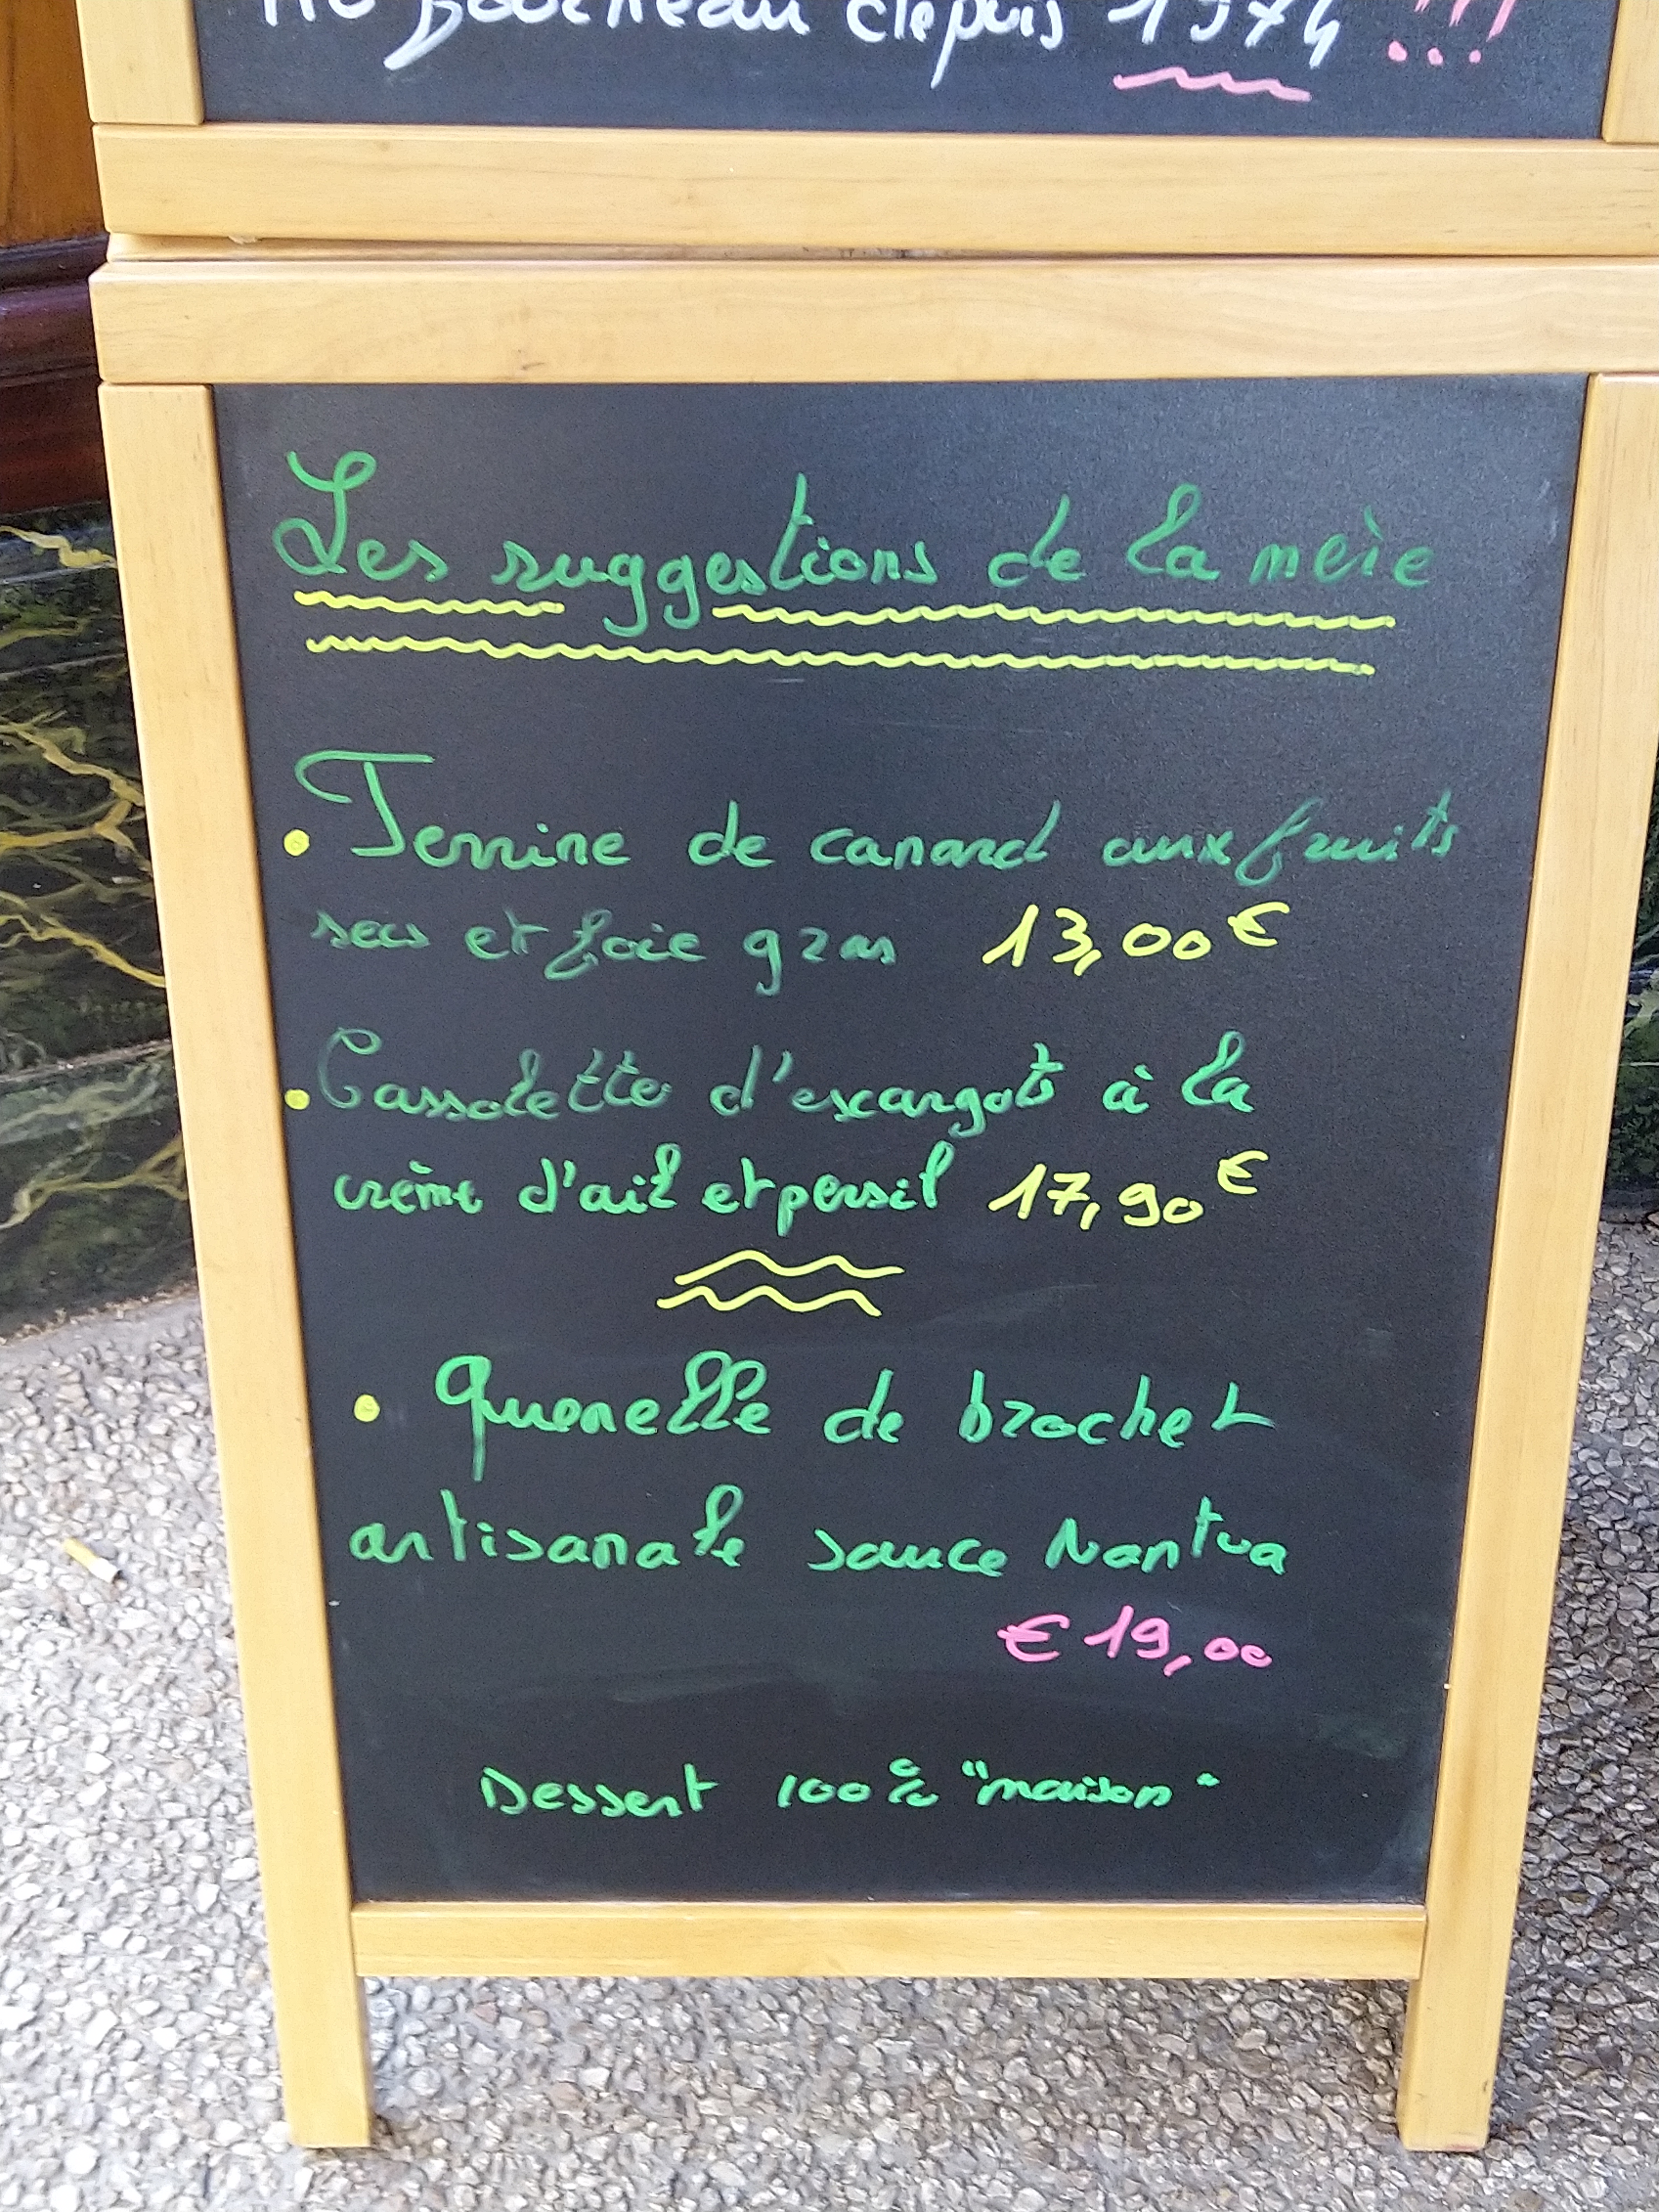 depuis 1974 !!!
Les suggestions de la mère
• Terrine de canard aux fruits
secs et foie gras 13,00 €
• Cassolette d'escargots à la
crème d'ail et persil 17,90 €
• Quenelle de brochet
artisanale sauce Nantua
€ 19,00
Dessert 100% "maison"